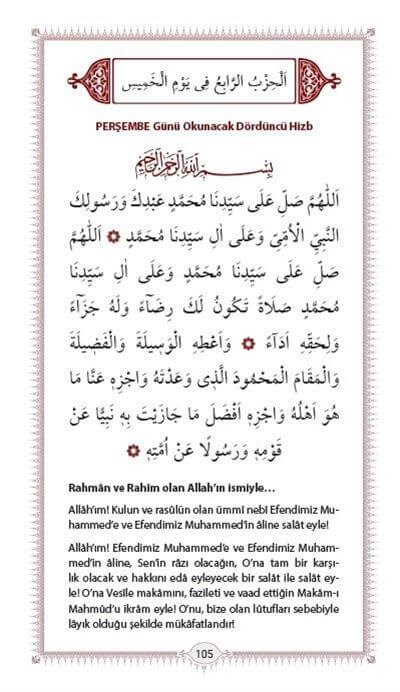 اَلْحِزْبُ الرَّابِعُ فِي يَوْمِ الْخَمِيسِ
PERŞEMBE Günü Okunacak Dördüncü Hizb
بِسْمِ اللّٰهِ الرَّحْمٰنِ الرَّحِيمِ
اَللّٰهُمَّ صَلِّ عَلٰى سَيِّدِنَا مُحَمَّدٍ عَبْدِكَ وَرَسُولِكَ
النَّبِيِّ الْاُمِّيِّ وَعَلٰى اٰلِ سَيِّدِنَا مُحَمَّدٍ ۞ اَللّٰهُمَّ
صَلِّ عَلٰى سَيِّدِنَا مُحَمَّدٍ وَعَلٰى اٰلِ سَيِّدِنَا
مُحَمَّدٍ صَلَاةً تَكُونُ لَكَ رِضَٓاءً وَلَهُ جَزَٓاءً
وَلِحَقِّهِ اَدَٓاءً ۞ وَاَعْطِهِ الْوَسِيلَةَ وَالْفَضِيلَةَ
وَالْمَقَامَ الْمَحْمُودَ الَّذِي وَعَدْتَهُ وَاجْزِهِ عَنَّا مَا
هُوَ اَهْلُهُ وَاجْزِهِ اَفْضَلَ مَا جَازَيْتَ بِهِ نَبِيًّا عَنْ
قَوْمِهِ وَرَسُولًا عَنْ اُمَّتِهِ ۞
Rahmân ve Rahîm olan Allah’ın ismiyle…
Allâh’ım! Kulun ve rasûlün olan ümmî nebî Efendimiz Mu-
hammed’e ve Efendimiz Muhammed’in âline salât eyle!
Allâh’ım! Efendimiz Muhammed’e ve Efendimiz Muham-
med’in âline, Sen’in râzı olacağın, O’na tam bir karşı-
lık olacak ve hakkını edâ eyleyecek bir salât ile salât ey-
le! O’na Vesîle makâmını, fazileti ve vaad ettiğin Makâm-ı
Mahmûd’u ikrâm eyle! O’nu, bize olan lûtufları sebebiyle
lâyık olduğu şekilde mükâfatlandır!
105